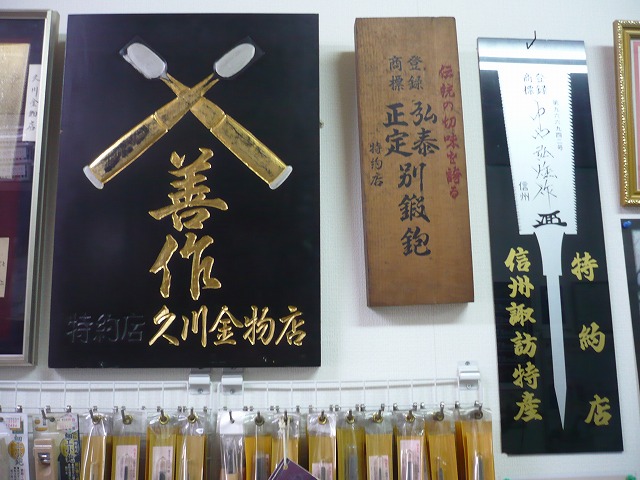 久川金物店
善作
特約店
久川金物店
伝統の切味を誇る
登録
商標
弘泰別鍛鉋
正定
特約店
登録
商標
信州
特約店
信州諏訪特産